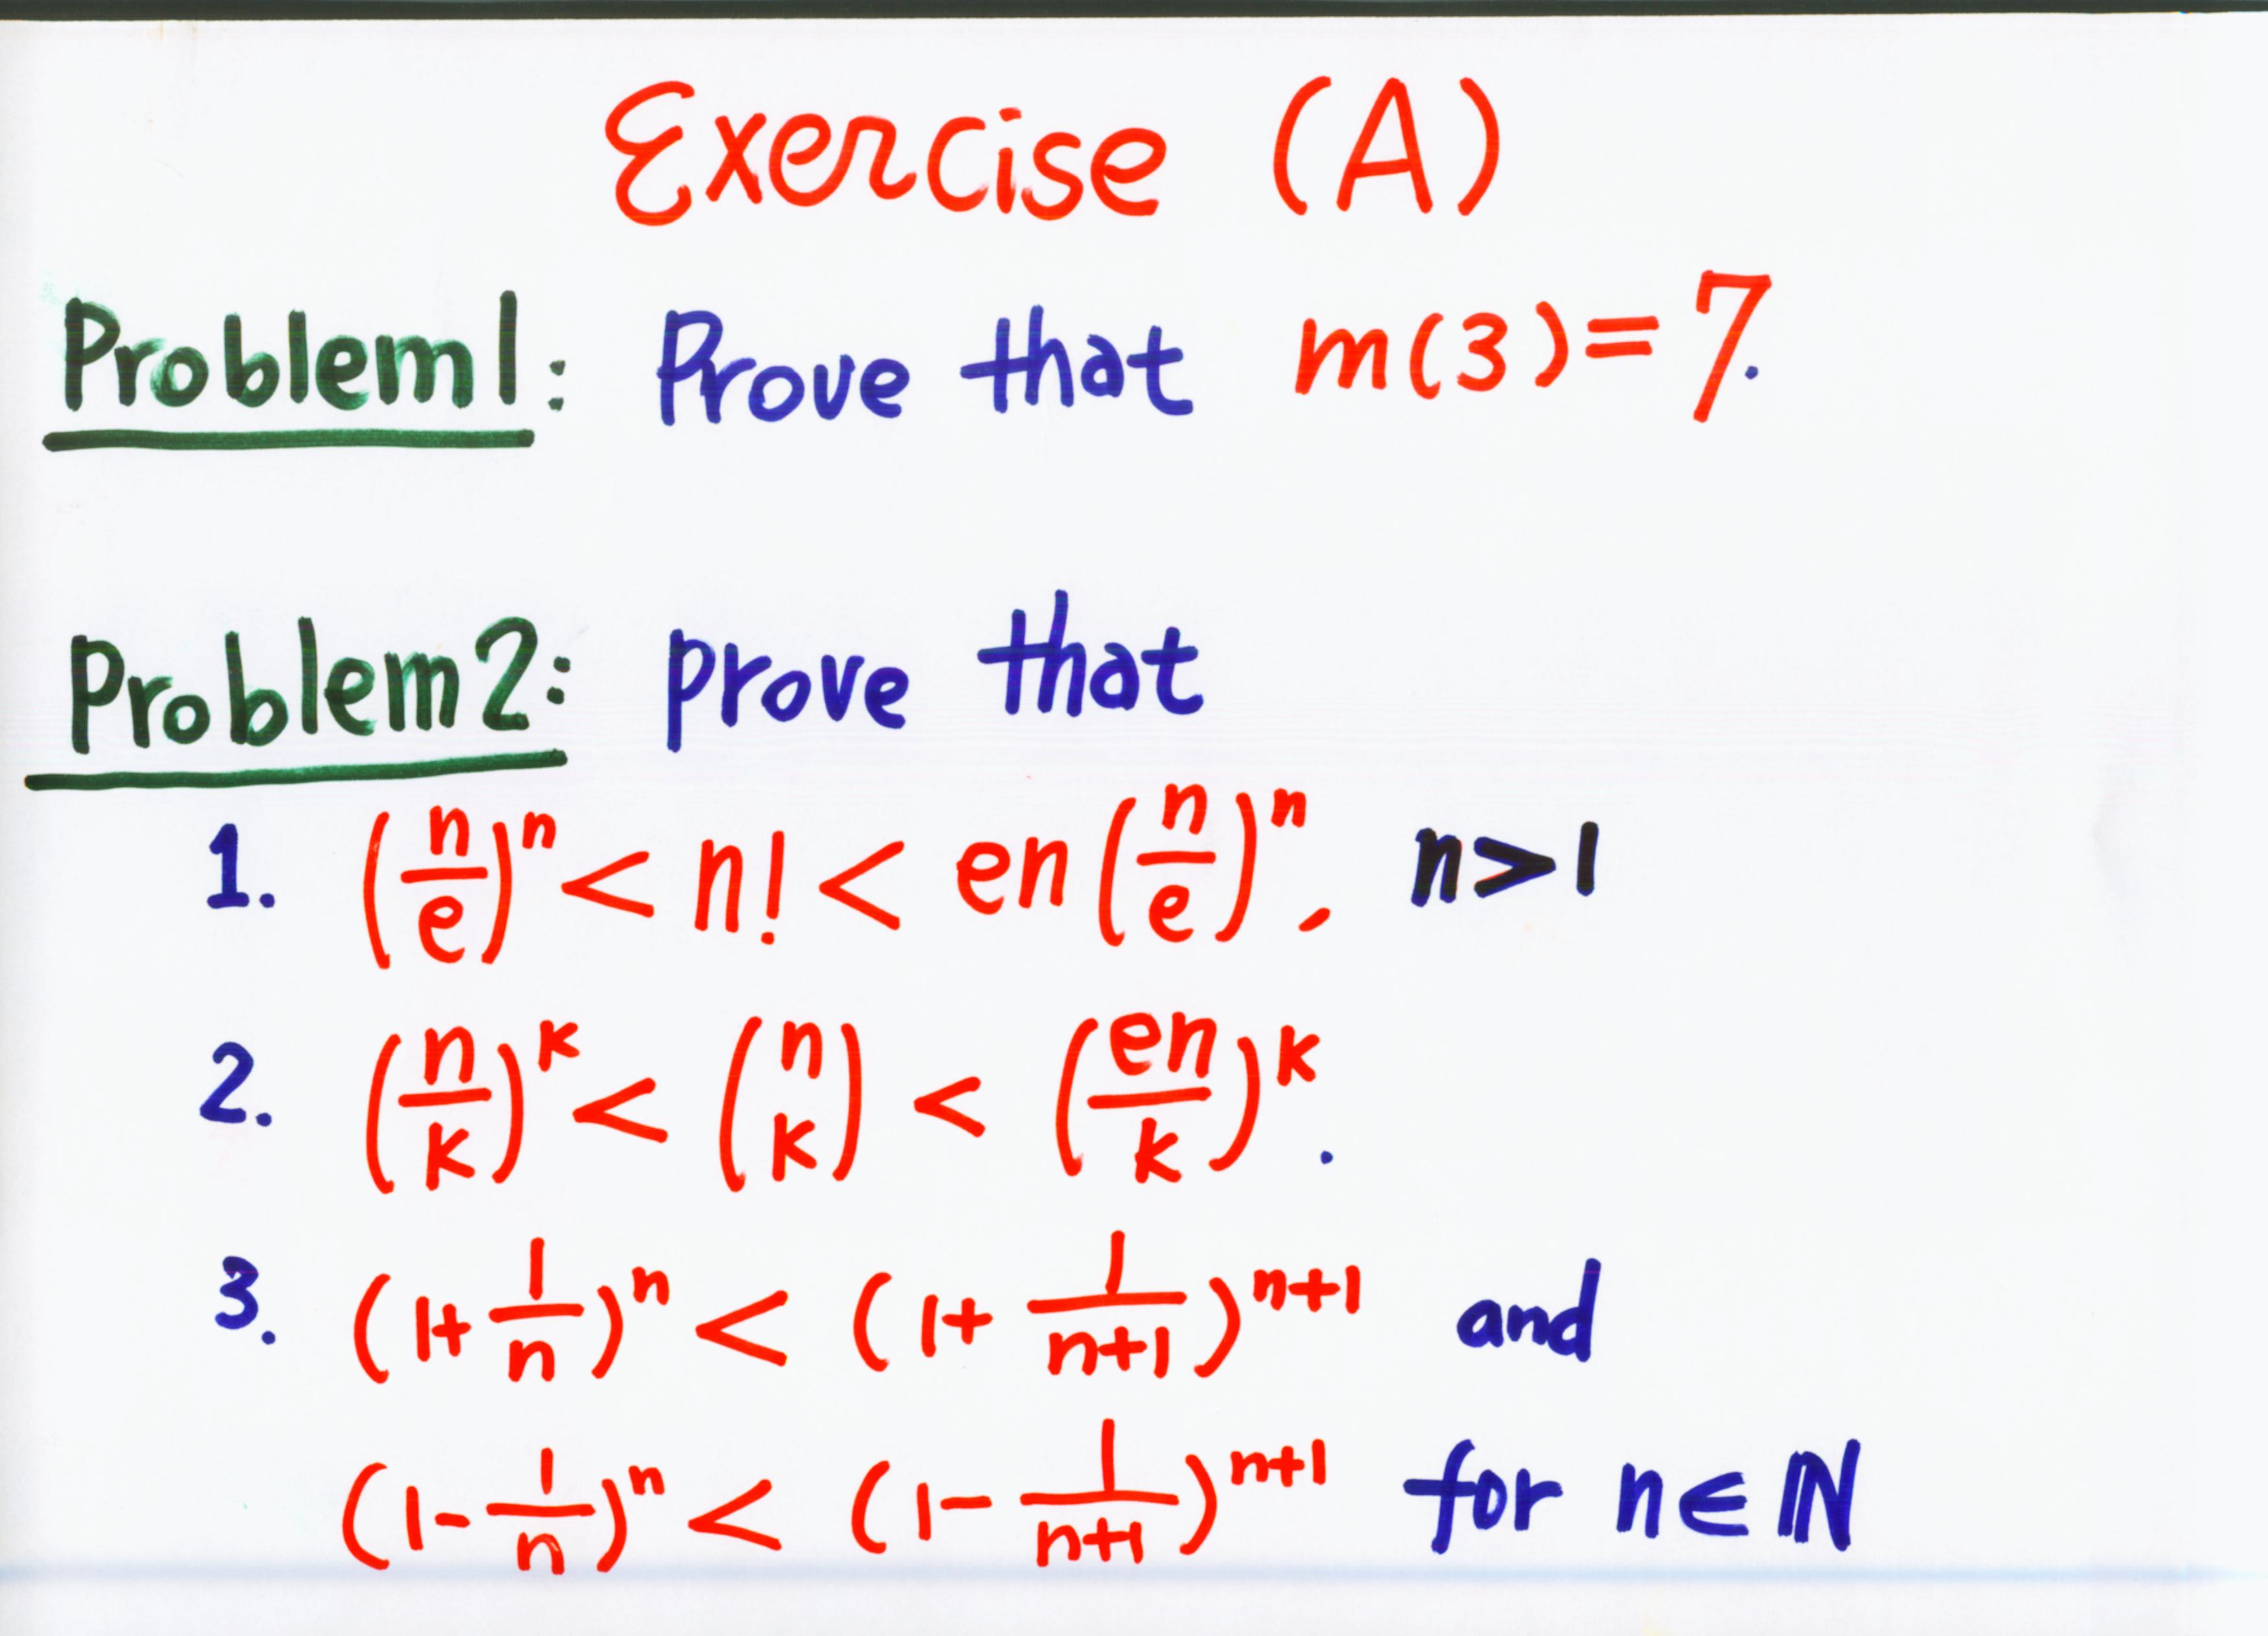 Exercise (A)
Problem 1: Prove that m(3)=7.
Problem 2: prove that
1. (n/e)^n < n! < en(n/e)^n, n>1
2. (n/k)^k < (n k) < (en/k)^k.
3. (1+ 1/n)^n < (1+ 1/(n+1))^(n+1) and
(1- 1/n)^n < (1- 1/(n+1))^(n+1) for n∈ℕ